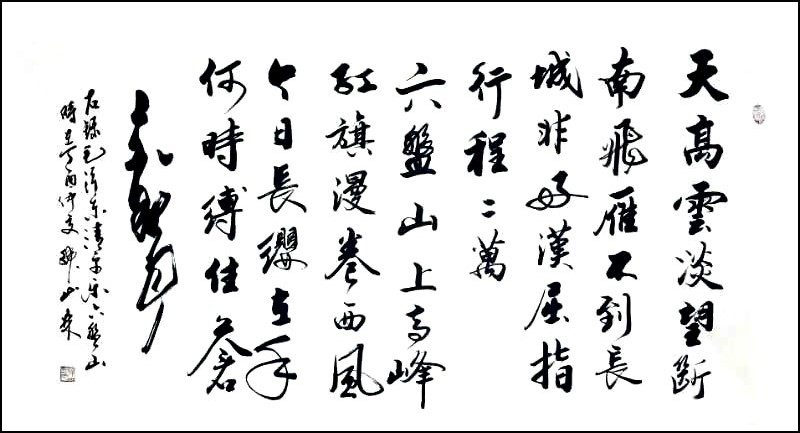 天高雲淡望斷
南飛雁不到長
城非好漢屈指
行程二萬
六盤山上高峰
紅旗漫卷西風
今日長纓在手
何時縛住蒼
龍
右錄毛澤東清平樂六盤山
時在丁酉仲夏